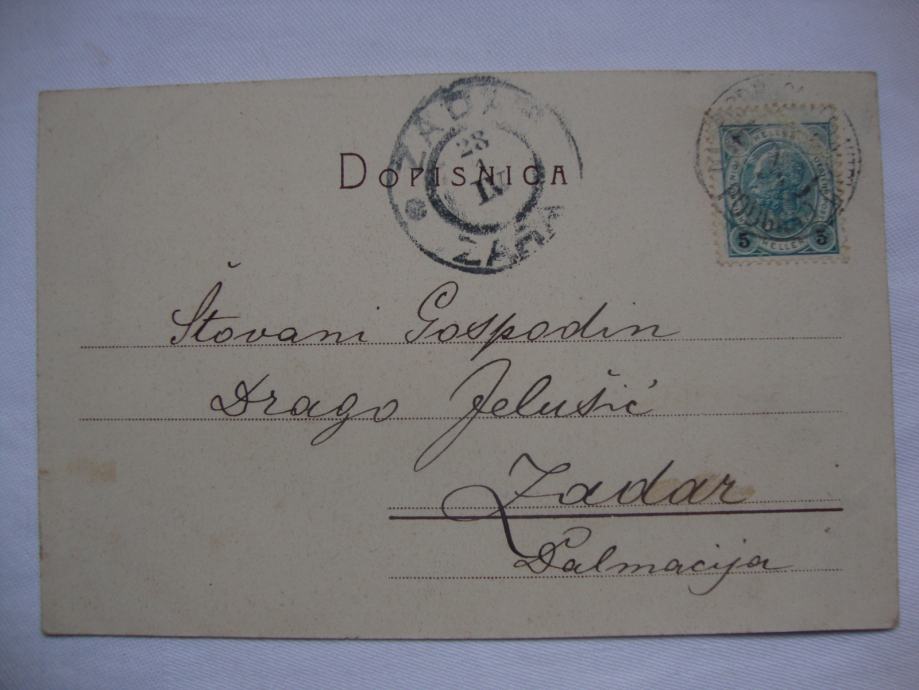 ZADAR
28
IV
ZARA
DOPISNICA
5 HELLER 5
Štovani Gospodin
Drago Jelušić
Zadar
Dalmacija